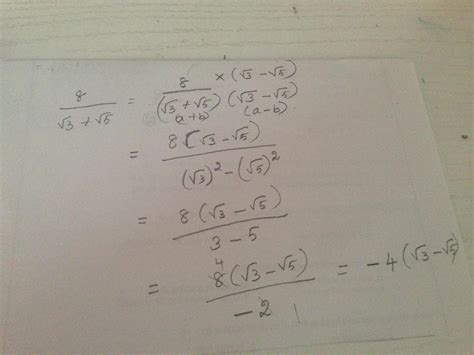 8/(√3 + √5) = 8 × (√3 − √5)/(√3 + √5) (√3 − √5)
(a+b) (a−b)
= 8(√3 − √5)/(√3)² − (√5)²
= 8(√3 − √5)/3 − 5
= 4 8(√3 − √5)/−2 = −4(√3 − √5)